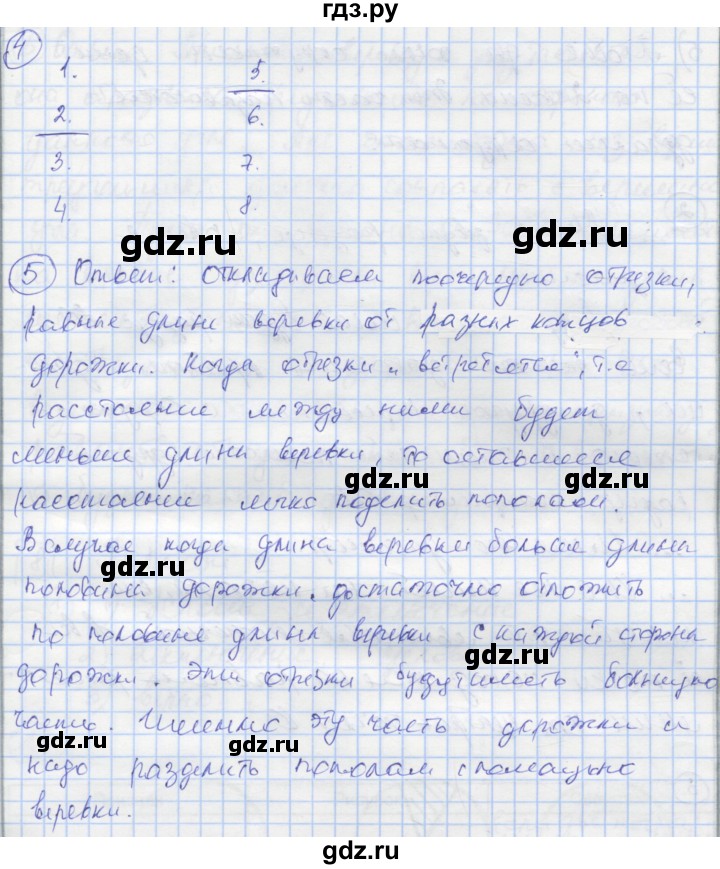 гдз.ру
4
1. 5.
2. 6.
3. 7.
4. 8.
gdz.ru gdz.ru
5 Ответ: откладываем поочерёдно отрезки,
равные длине веревки от разных концов
дорожки. Когда отрезки „встретятся", т.е
gdz.ru gdz.ru
расстояние между ними будет
меньше длины веревки, то оставшееся
gdz.ru gdz.ru
расстояние легко поделить пополам.
В случае когда длина веревки больше длины
gdz.ru gdz.ru
половины дорожки, достаточно отложить
по половине длины веревки с каждой стороны
gdz.ru
дорожки. Эти отрезки будут иметь большую
часть. Именно эту часть дорожки и
gdz.ru gdz.ru
надо разделить пополам с помощью
веревки.
gdz.ru